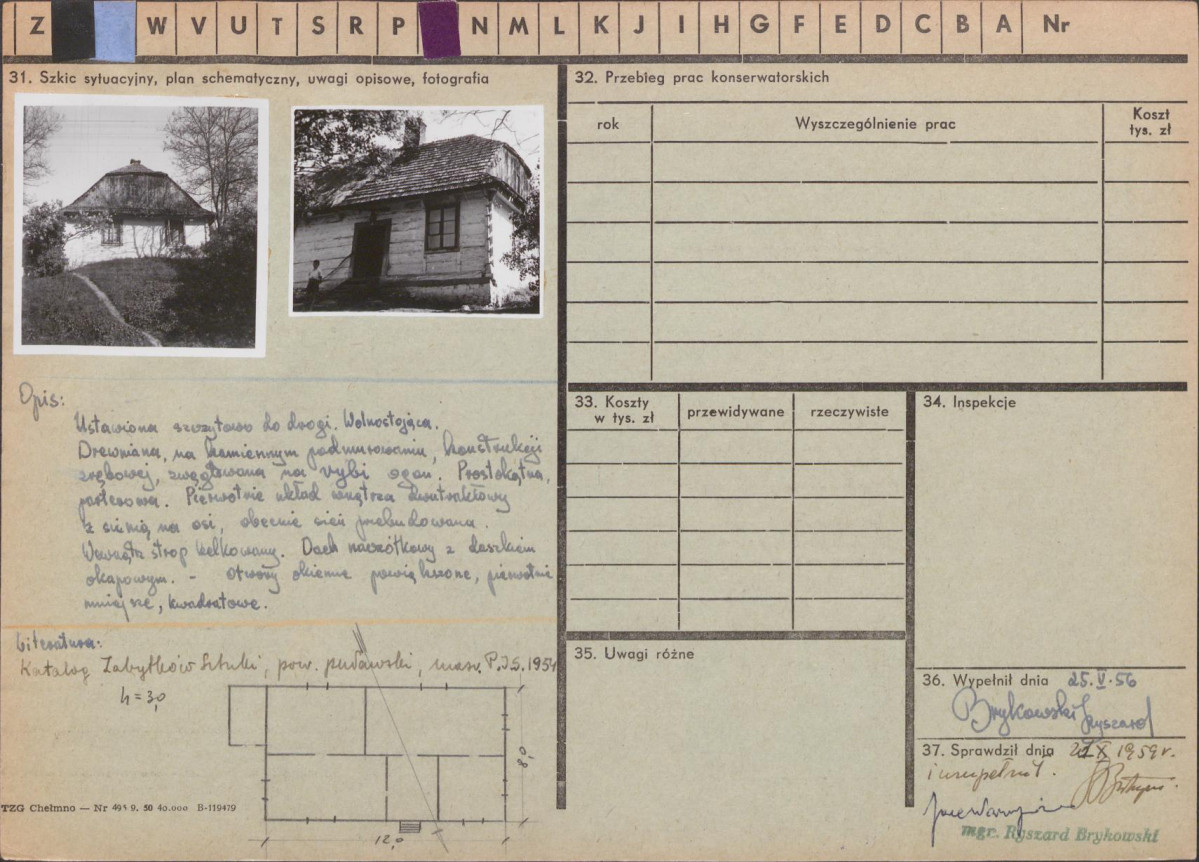 Z W V U T S R P N M L K J I H G F E D C B A Nr
31. Szkic sytuacyjny, plan schematyczny, uwagi opisowe, fotografia
Opis:
Ustawiona szczytowo do drogi. Wolnostojąca.
Drewniana, na kamiennym podmurowaniu, konstrukcji
zrębowej, zwęgłowana na rybi ogon. Prostokątna,
parterowa. Pierwotnie układ wnętrza dwutraktowy
z sienią na osi, obecnie sień przebudowana.
Wewnątrz strop belkowany. Dach naczółkowy z daszkiem
okapowym. - Otwory okienne powiększone, pierwotnie
mniejsze, kwadratowe.
Literatura:
Katalog Zabytków Sztuki, pow. puławski, P.I.S. 195
h = 3,0
8,0
12,0
TZG Chełmno — Nr 9. 50 40.000 B-119479
32. Przebieg prac konserwatorskich
rok
Wyszczególnienie prac
Koszt
tys. zł
33. Koszty
w tys. zł
przewidywane
rzeczywiste
34. Inspekcje
35. Uwagi różne
36. Wypełnił dnia 25.V.56
Brykowski Ryszard
37. Sprawdził dnia X 1959 r.
i uzupełnił.
mgr. Ryszard Brykowski